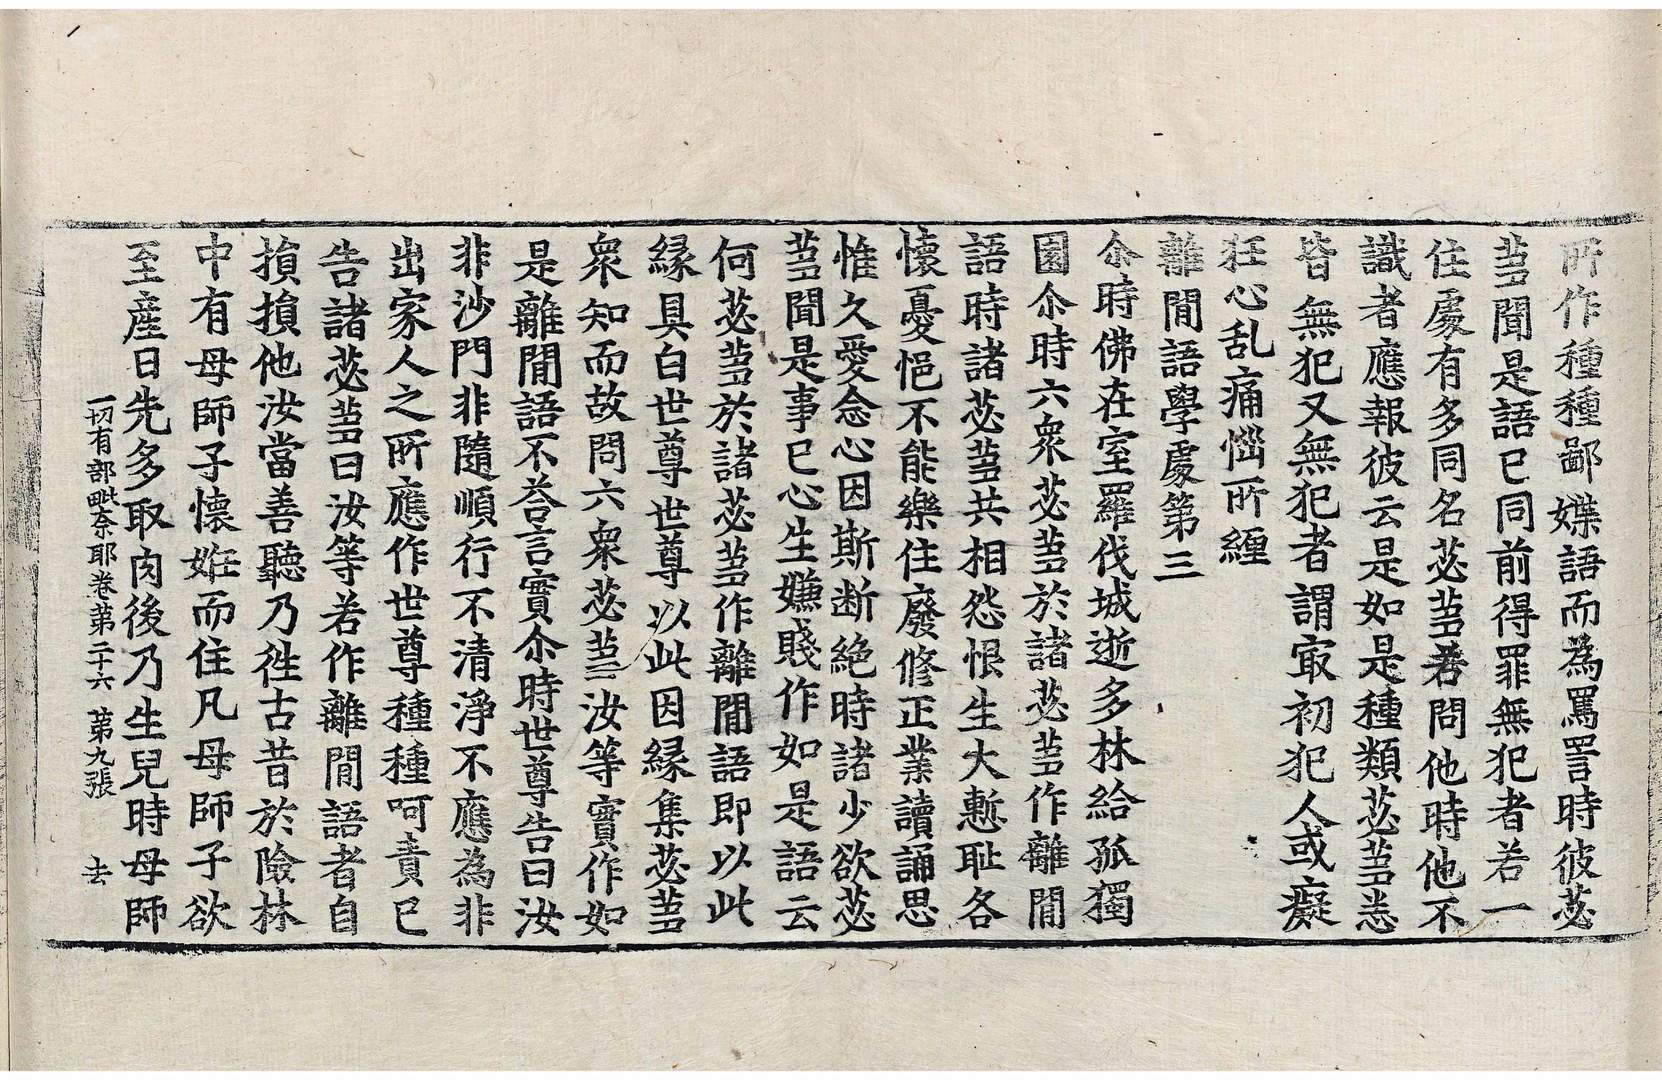 所作種種鄙媟語而為罵詈時彼苾
芻聞是語已同前得罪無犯者若一
住處有多同名苾芻若問他時他不
識者應報彼云是如是種類苾芻悉
皆無犯又無犯者謂㝡初犯人或癡
狂心乱痛惱所纏
離間語學處第三
尒時佛在室羅伐城逝多林給孤獨
園尒時六衆苾芻於諸苾芻作離間
語時諸苾芻共相怨恨生大慙耻各
懷憂悒不能樂住廢修正業讀誦思
惟久愛念心因斯断絶時諸少欲苾
芻聞是事已心生嫌賤作如是語云
何苾芻於諸苾芻作離間語即以此
縁具白世尊世尊以此因縁集苾芻
衆知而故問六衆苾芻汝等實作如
是離間語不荅言實尒時世尊告曰汝
非沙門非隨順行不清淨不應為非
出家人之所應作世尊種種呵責已
告諸苾芻曰汝等若作離間語者自
損損他汝當善聽乃徃古昔於險林
中有母師子懷姙而住凡母師子欲
至產日先多取肉後乃生兒時母師
一切有部毗奈耶卷第二十六 第九張 去